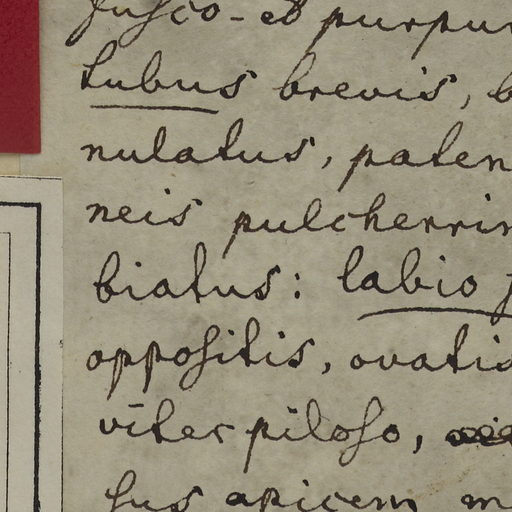 fusco-et purpur
tubus brevis, b
nulatus, paten
neis pulcherrim
biatus: labio
oppositis, ovatis
viter piloso,
sus apicem m